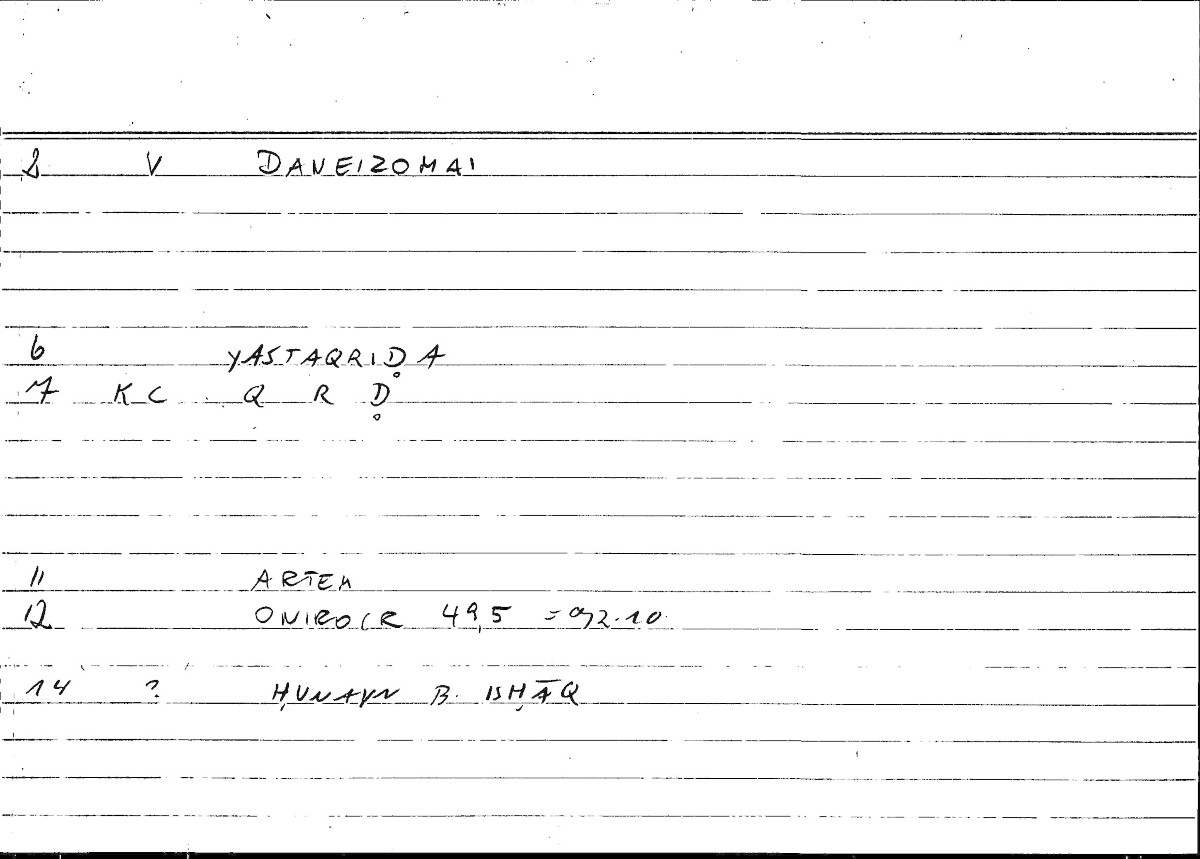 2 V DANEIZOMAI
6 YASTAQRIḌA
7 KC Q R Ḍ
11 ARTEM
12 ONIROCR 49,5 = 92.10
14 ? ḤUNAYN B. ISḤĀQ